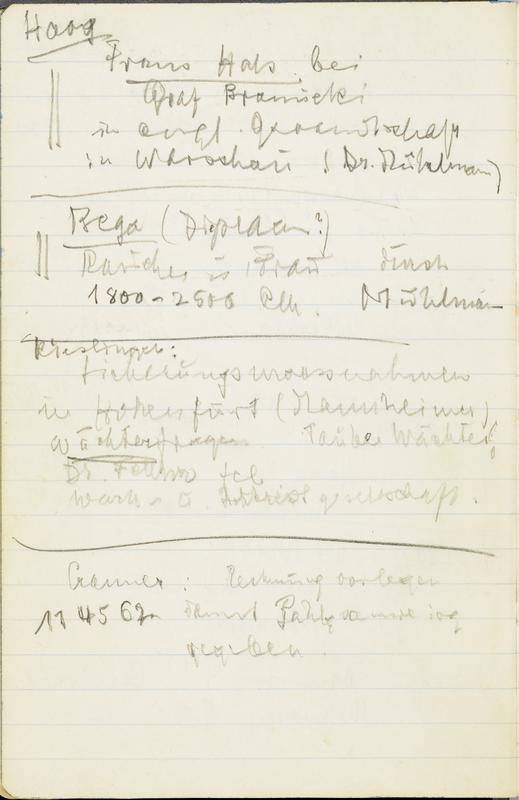 Haag
Frans Hals bei
Graf Branicki
in engl. Gesandtschaft
in Warschau (Dr. Mühlmann)
Bega (Diepraam?)
Raucher u. Frau durch
1800-2500 Mühlmann
Sicherungsmassnahmen
in Hohenfurt (Mannheimer)
Wächterfragen Taube Wächter
Dr.
Wach- u. gesellschaft.
Cramer: Rechnung vorlegen
damit
gegeben.